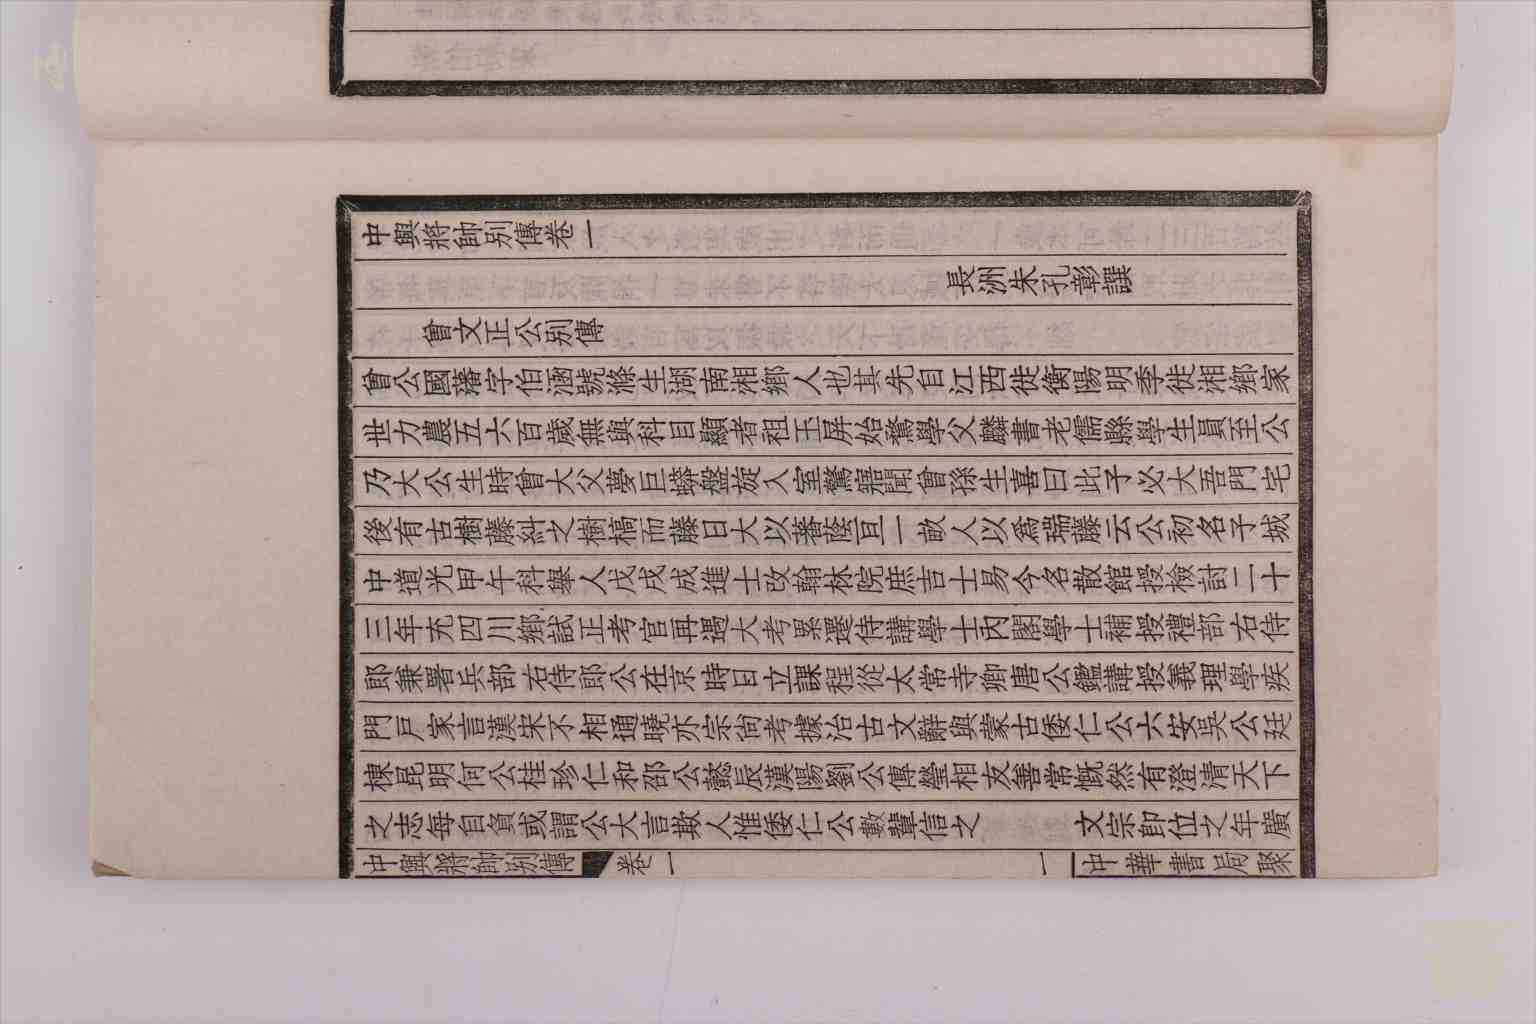 中興將帥別傳卷一
長洲朱孔彰譔
曾文正公別傳
曾公國藩字伯涵號滌生湖南湘鄉人也其先自江西徙衡陽明季徙湘鄉家
世力農五六百歲無與科目顯者祖玉屏始騖學父麟書老儒縣學生員至公
乃大公生時曾大父夢巨蟒盤旋入室驚寤聞曾孫生喜曰此子必大吾門宅
後有古樹藤糾之樹槁而藤日大以蕃蔭亘一畝人以爲瑞藤云公初名子城
中道光甲午科舉人戊戌成進士改翰林院庶吉士易今名散館授檢討二十
三年充四川鄉試正考官再遇大考累遷侍講學士內閣學士補授禮部右侍
郎兼署兵部右侍郎公在京時日立課程從太常寺卿唐公鑑講授義理學疾
門戶家言漢宋不相通曉亦宗尙考據治古文辭與蒙古倭仁公六安吳公廷
棟昆明何公桂珍仁和邵公懿辰漢陽劉公傳瑩相友善常慨然有澄清天下
之志每自負或謂公大言欺人惟倭仁公數輩信之 文宗卽位之年廣
中興將帥別傳 卷一 一 中華書局聚